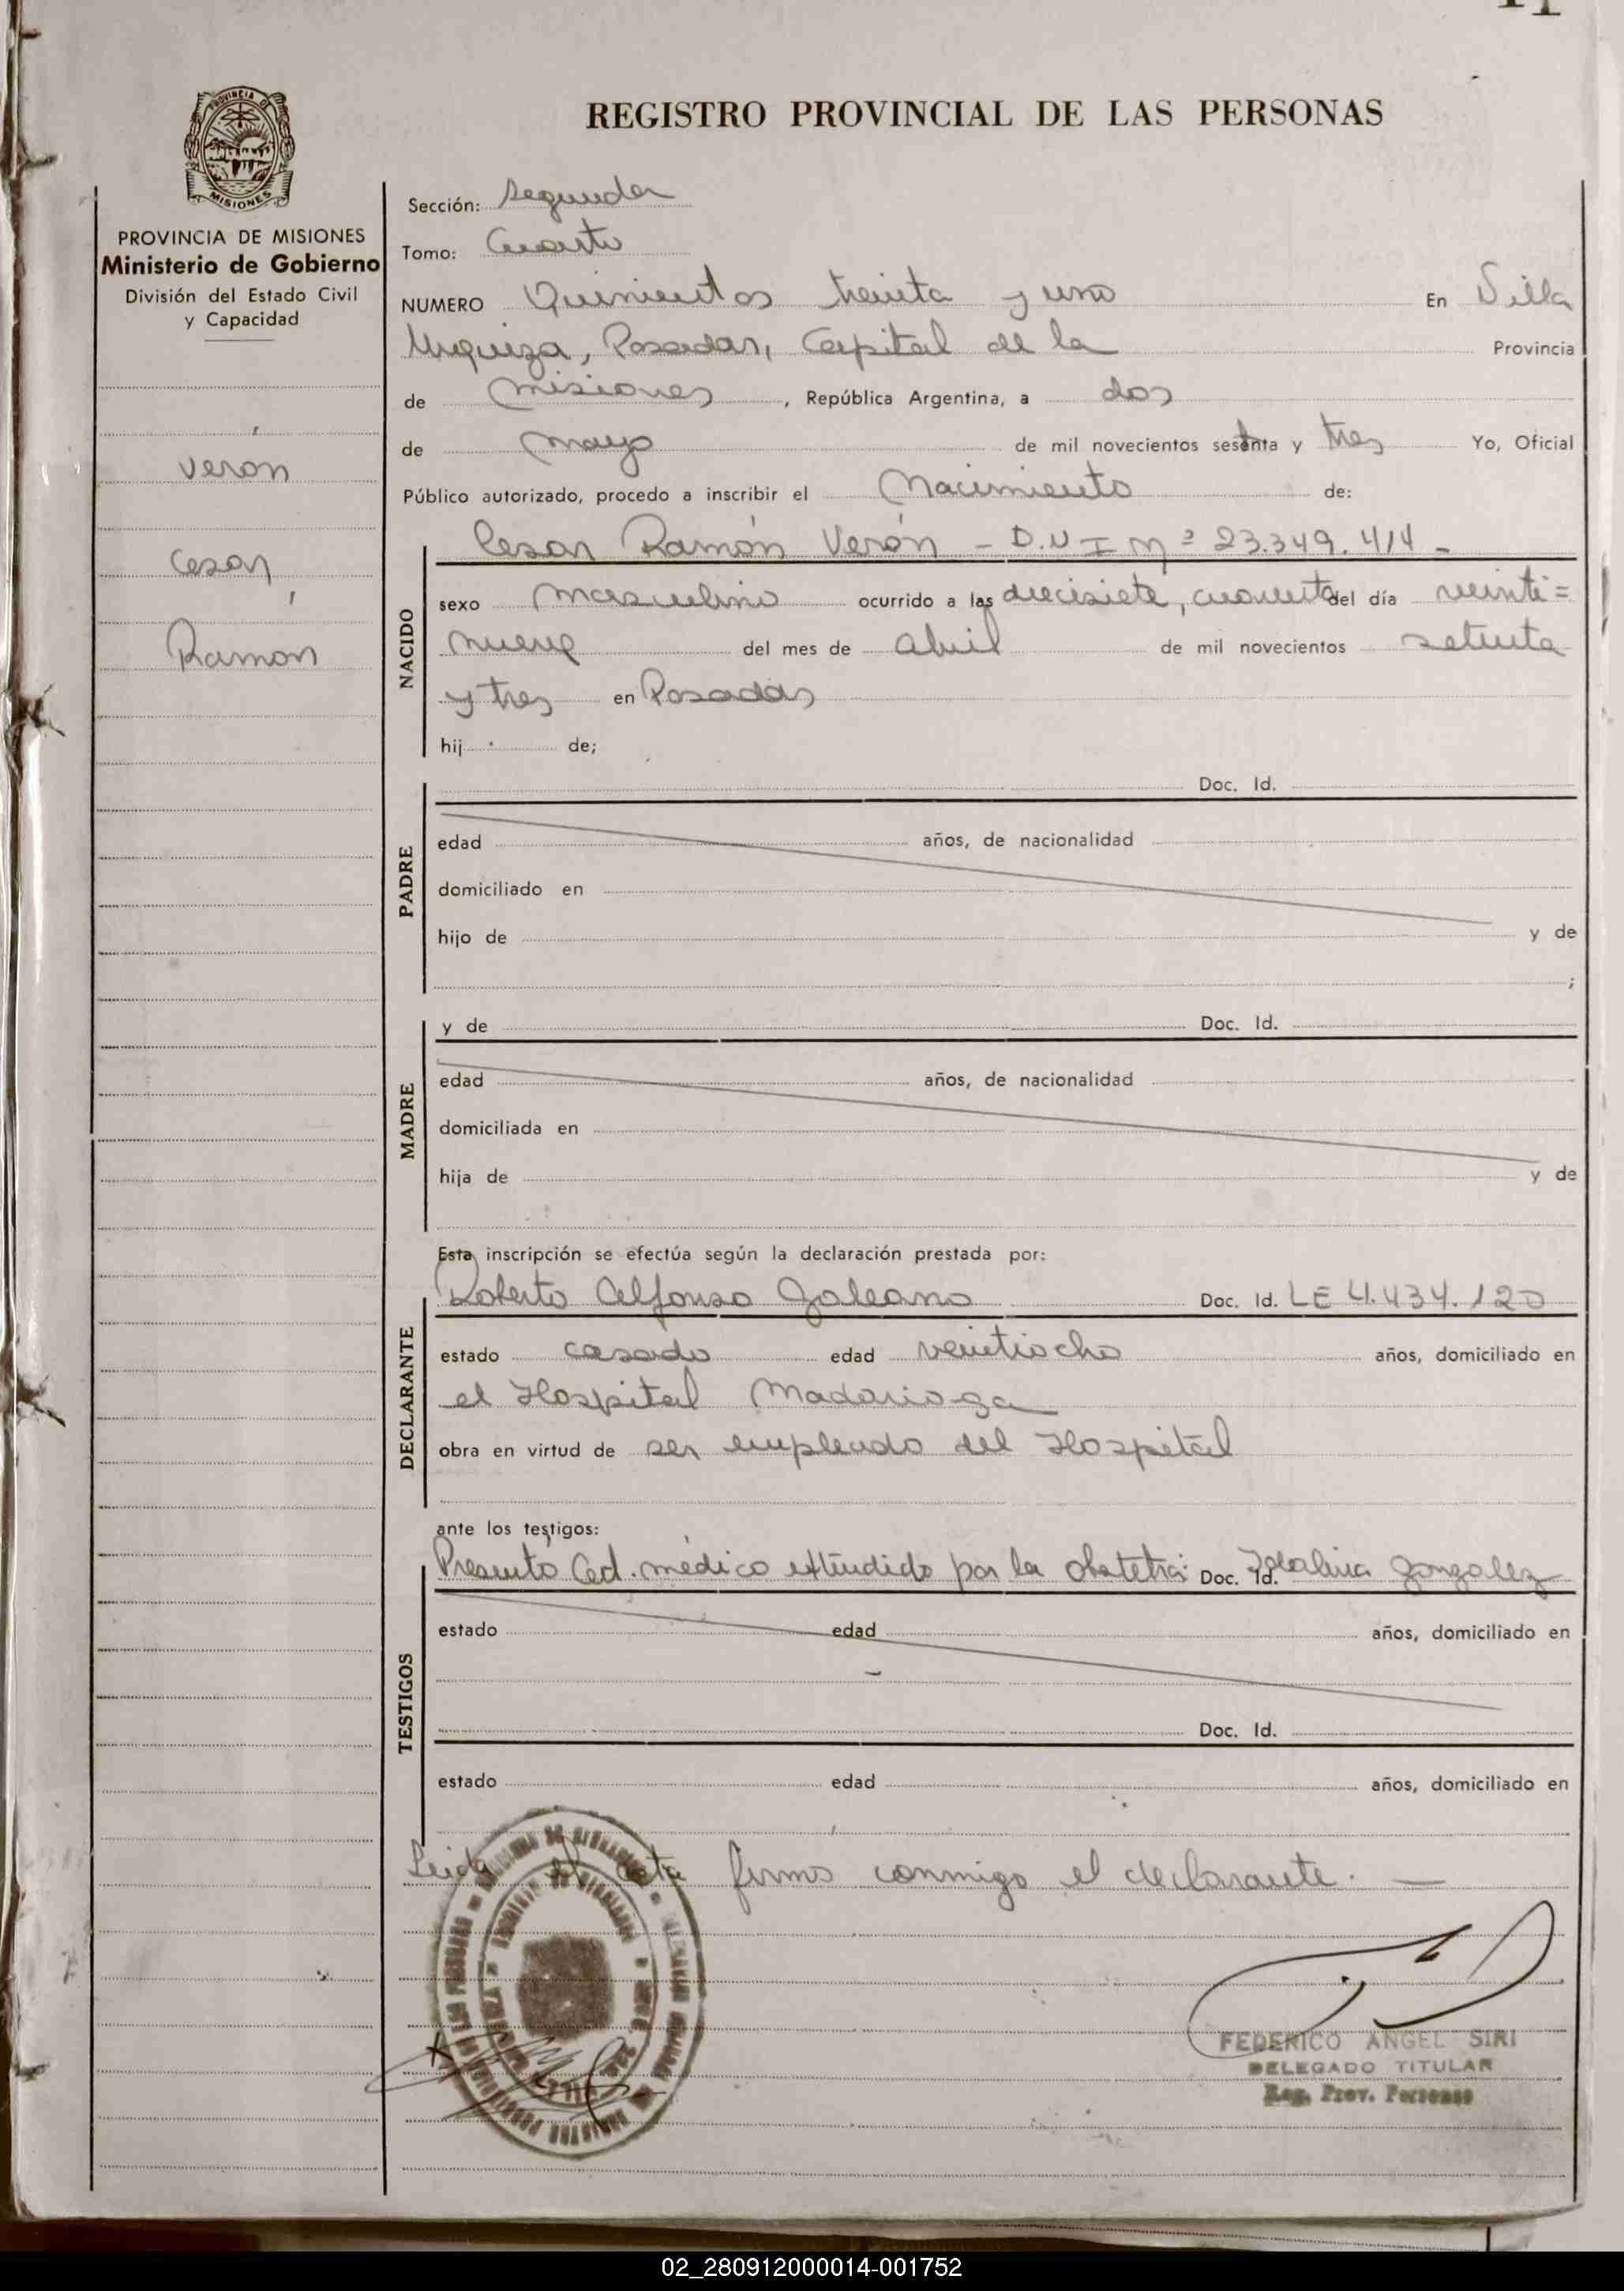 REGISTRO PROVINCIAL DE LAS PERSONAS
PROVINCIA DE MISIONES
PROVINCIA DE MISIONES
Ministerio de Gobierno
División del Estado Civil
y Capacidad
Verón
Cesar
Ramón
Sección: Segunda
Tomo: Cuarto
NUMERO Quinientos treinta y uno En Villa
Urquiza, Posadas, Capital de la Provincia
de Misiones, República Argentina, a dos
de mayo de mil novecientos setenta y tres Yo, Oficial
Público autorizado, procedo a inscribir el Nacimiento de:
Cesar Ramón Verón - D.N.I Nº 23.349.414 -
NACIDO
sexo masculino ocurrido a las diecisiete, cuarenta del día veinti=
nueve del mes de abril de mil novecientos setenta
y tres en Posadas
hij de;
PADRE
Doc. Id.
edad años, de nacionalidad
domiciliado en
hijo de y de
;
MADRE
y de Doc. Id.
edad años, de nacionalidad
domiciliada en
hija de y de
Esta inscripción se efectúa según la declaración prestada por:
DECLARANTE
Roberto Alfonso Galeano Doc. Id. LE 4.434.120
estado casado edad veintiocho años, domiciliado en
el Hospital Madariaga
obra en virtud de ser empleado del Hospital
ante los testigos:
TESTIGOS
Presentó Ced. médico extendido por la obstetra Doc. Id. Gonzalez
estado edad años, domiciliado en
Doc. Id.
estado edad años, domiciliado en
Leida el acta firma conmigo el declarante. —
FEDERICO ANGEL SIRI
DELEGADO TITULAR
Reg. Prov. Personas
02_280912000014-001752